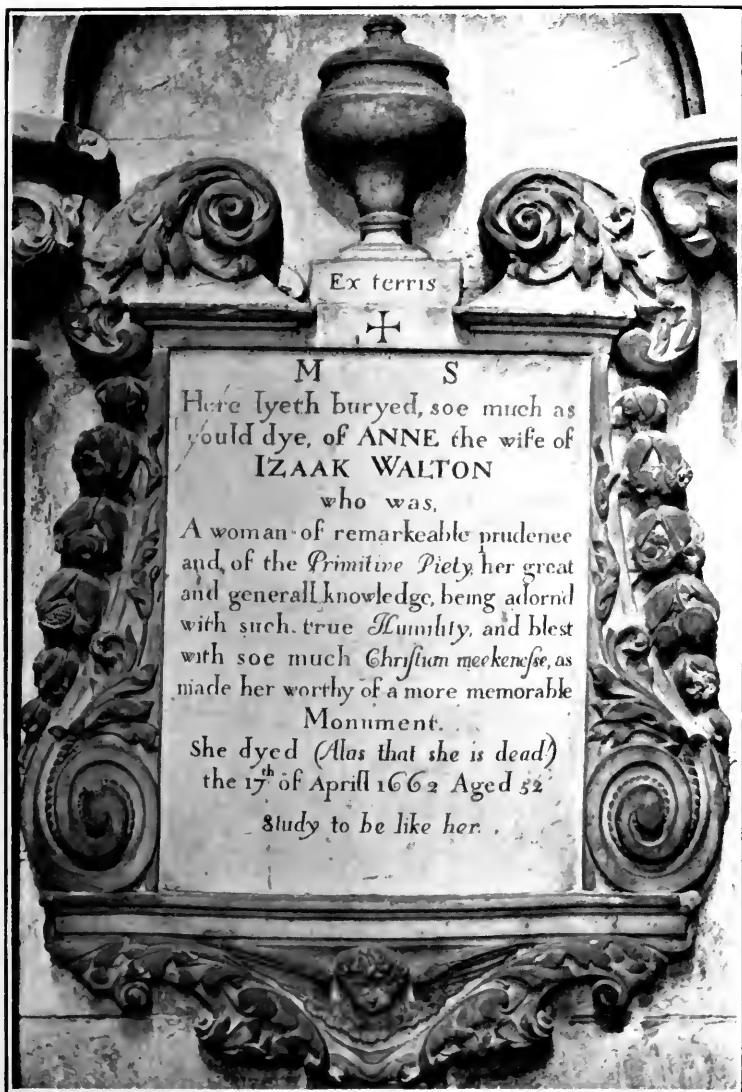 Ex terris
M S
Here lyeth buryed, soe much as
could dye, of ANNE the wife of
IZAAK WALTON
who was,
A woman of remarkeable prudence
and, of the Primitive Piety, her great
and generall knowledge, being adorn'd
with such true Humility, and blest
with soe much Chriſtian meekeneſse, as
made her worthy of a more memorable
Monument.
She dyed (Alas that she is dead!)
the 17th of Aprill 1662 Aged 52
Study to be like her.